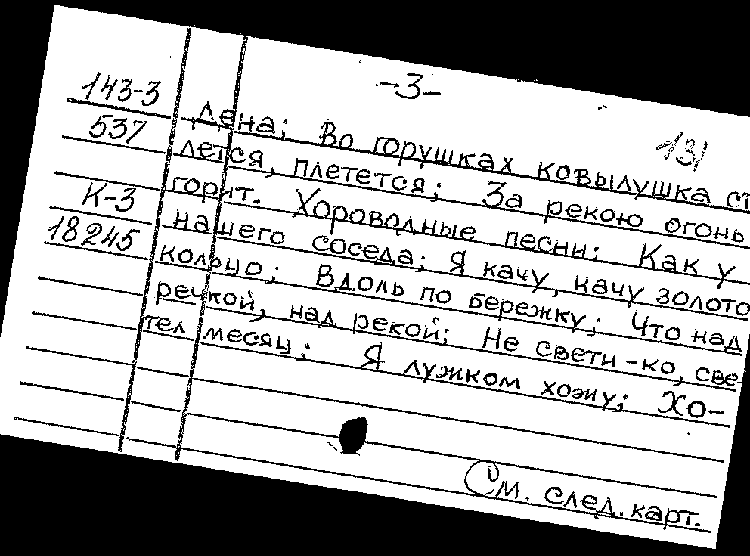 -3-
143-3
537
131
К-3
18245
лена; Во горушках ковылушка ст
лется, плетется; За рекою огонь
горит. Хороводные песни: Как у
нашего соседа; Я качу, качу золото
кольцо; Вдоль по бережку; Что над
речкой, над рекой; Не свети-ко, све
тел месяц; Я лужком хожу; Хо-
См. след. карт.